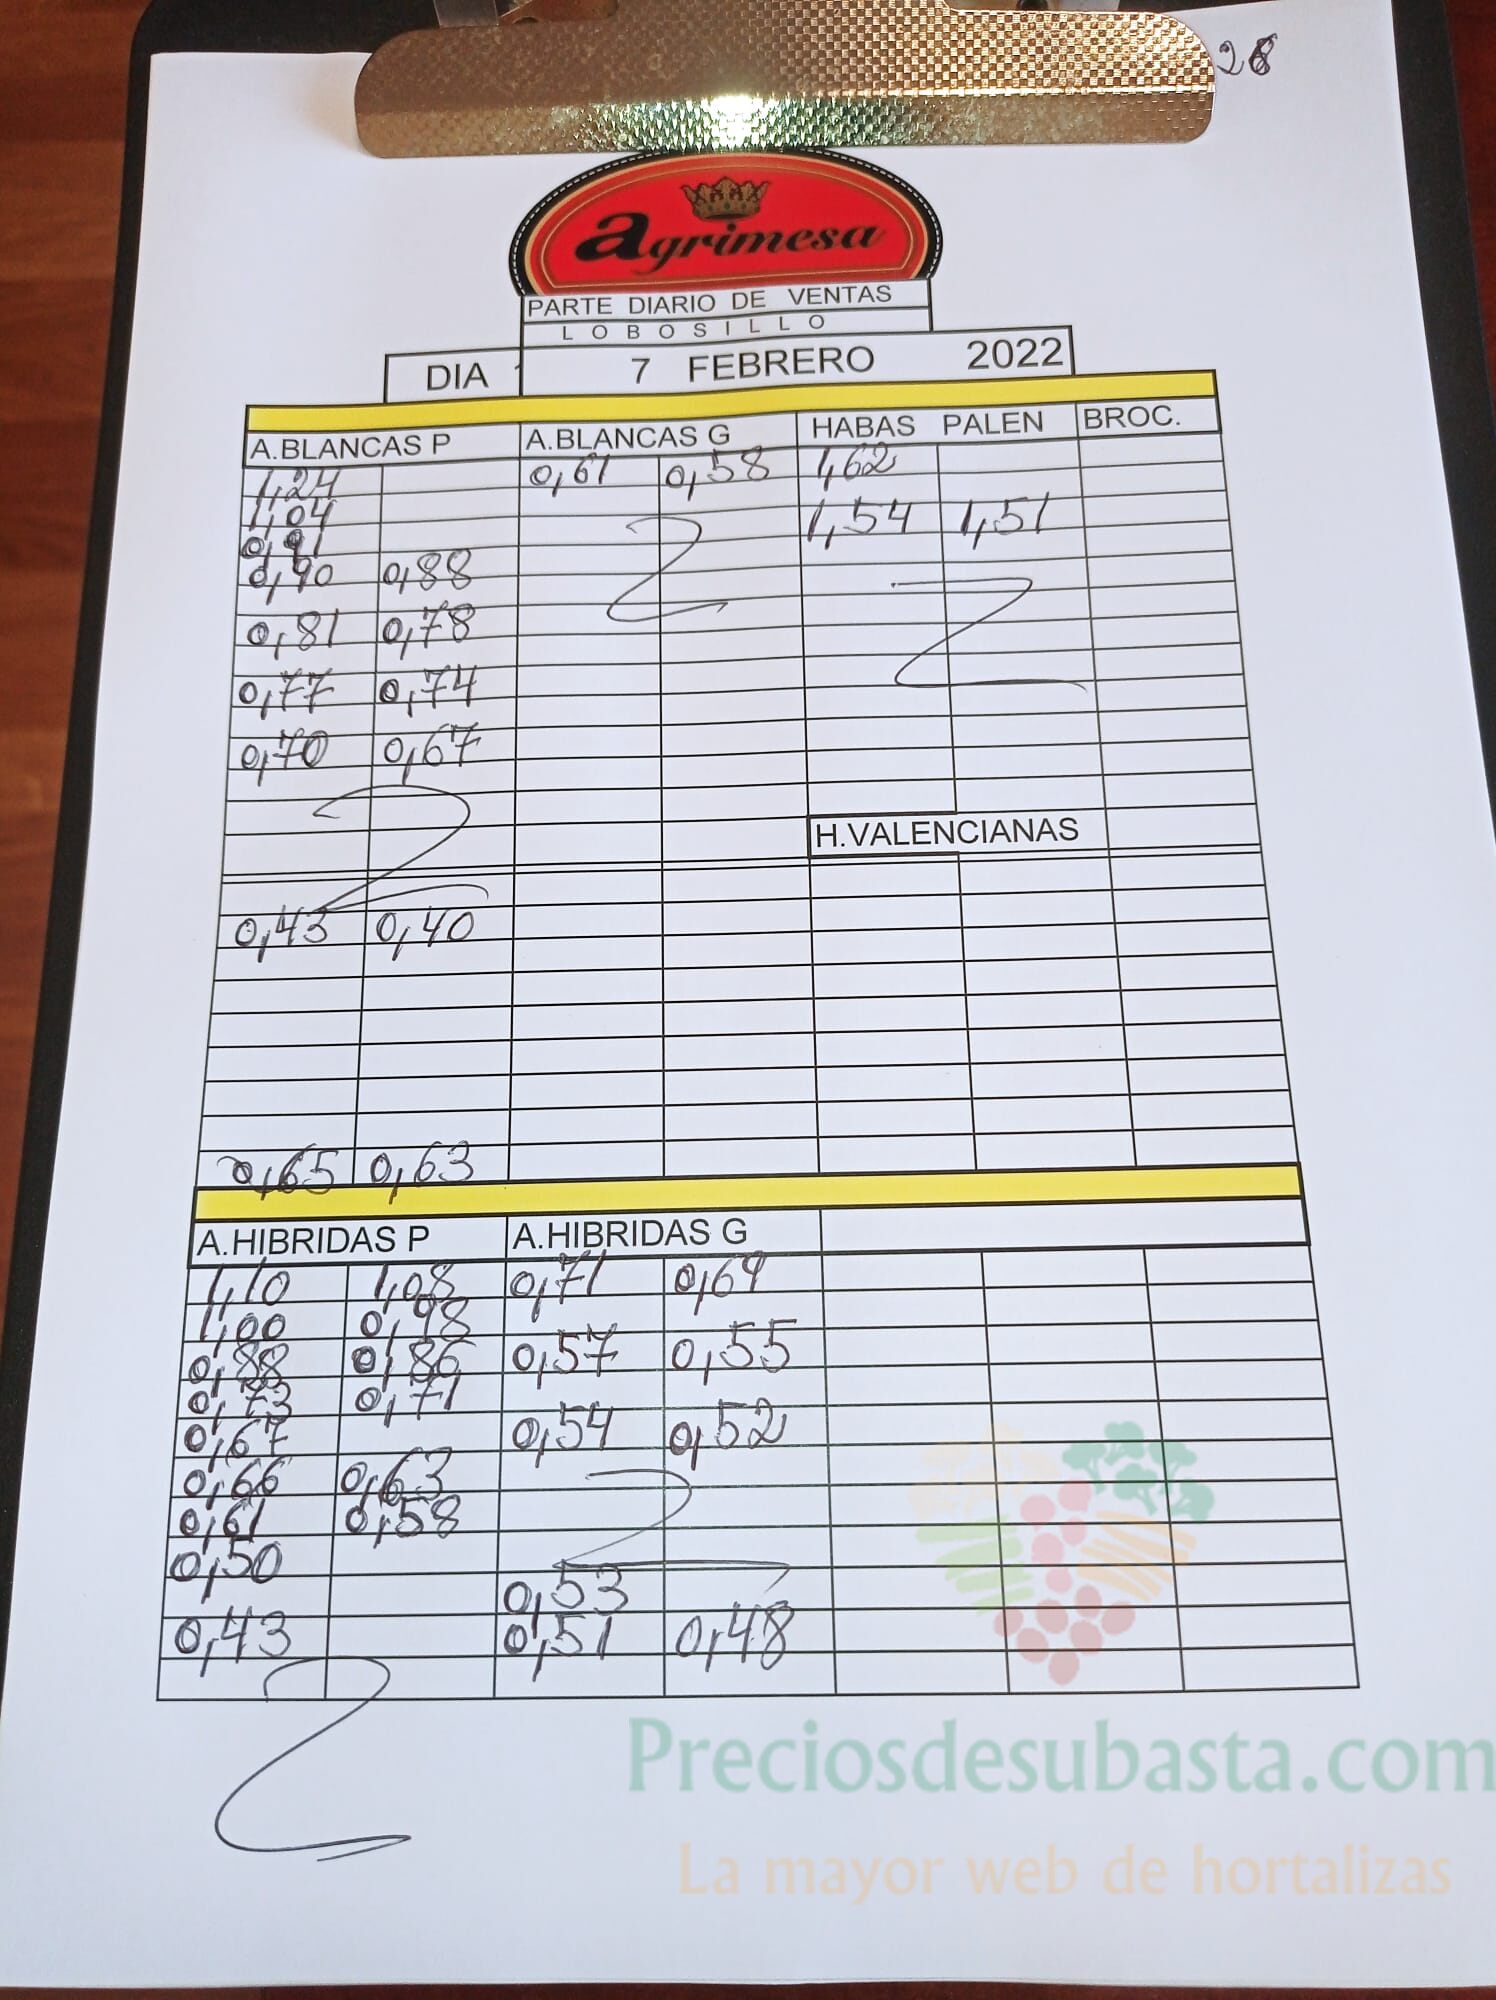 28
agrimesa
PARTE DIARIO DE VENTAS
LOBOSILLO
DIA 7 FEBRERO 2022
A.BLANCAS P A.BLANCAS G HABAS PALEN BROC.
1,24 0,61 0,58 1,62
1,04 1,54 1,51
0,91
0,90 0,88
0,81 0,78
0,77 0,74
0,70 0,67
H.VALENCIANAS
0,43 0,40
0,65 0,63
A.HIBRIDAS P A.HIBRIDAS G
1,10 1,08 0,71 0,69
1,00 0,98
0,88 0,86 0,57 0,55
0,73 0,71
0,67 0,54 0,52
0,66 0,63
0,61 0,58
0,50
0,53
0,43 0,51 0,48
Preciosdesubasta.com
La mayor web de hortalizas